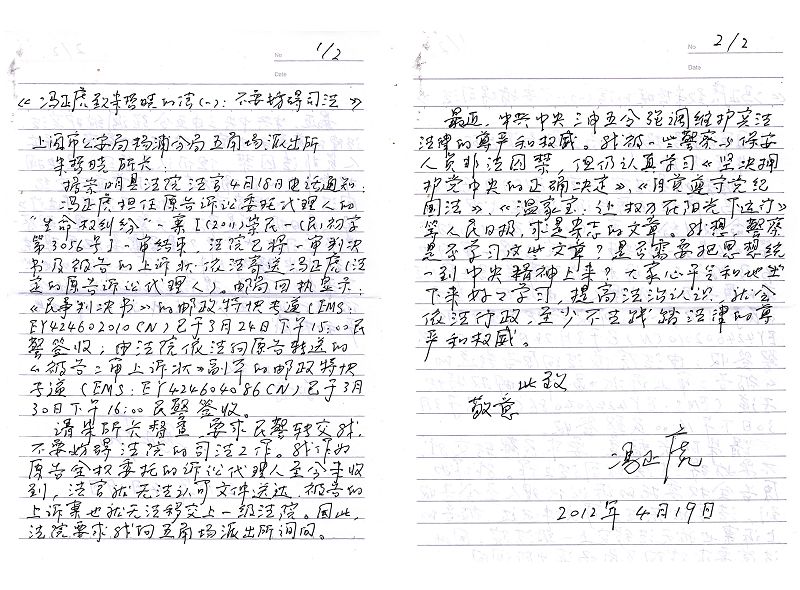 No 1/2
Date
《冯正虎致朱哲晓的信(一)：不要妨碍司法》
上海市公安局杨浦分局五角场派出所
朱哲晓所长：
据崇明县法院法官4月18日电话通知：
冯正虎担任原告诉讼委托代理人的
“生命权纠纷”一案【(2011)崇民一(民)初字
第3056号】一审结束，法院已将一审判决
书及被告的上诉状依法寄送冯正虎(法
定的原告诉讼代理人)。邮局回执显示：
《民事判决书》的邮政特快专递(EMS:
EY424602010CN)已于3月24日下午15:00民
警签收；由法院依法向原告转送的
《被告二审上诉状》副本的邮政特快
专递(EMS:EY424604086CN)已于3月
30日下午16:00民警签收。
请朱所长督查，要求民警转交我，
不要妨碍法院的司法工作。我作为
原告全权委托的诉讼代理人至今未收
到，法官就无法认可文件送达，被告的
上诉案也就无法移交上一级法院。因此，
法院要求我向五角场派出所询问。
No 2/2
Date
最近，中共中央三申五令强调维护宪法
法律的尊严和权威。我被一些警察、保安
人员非法囚禁，但仍认真学习《坚决拥
护党中央的正确决定》、《自觉遵守党纪
国法》、《温家宝：让权力在阳光下运行》
等人民日报、求是杂志的文章。我想，警察
是否学习这些文章？是否需要把思想统
一到中央精神上来？大家心平气和地坐
下来好好学习，提高法治认识，就会
依法行政，至少不去践踏法律的尊
严和权威。
此致
敬意
冯正虎
2012年4月19日